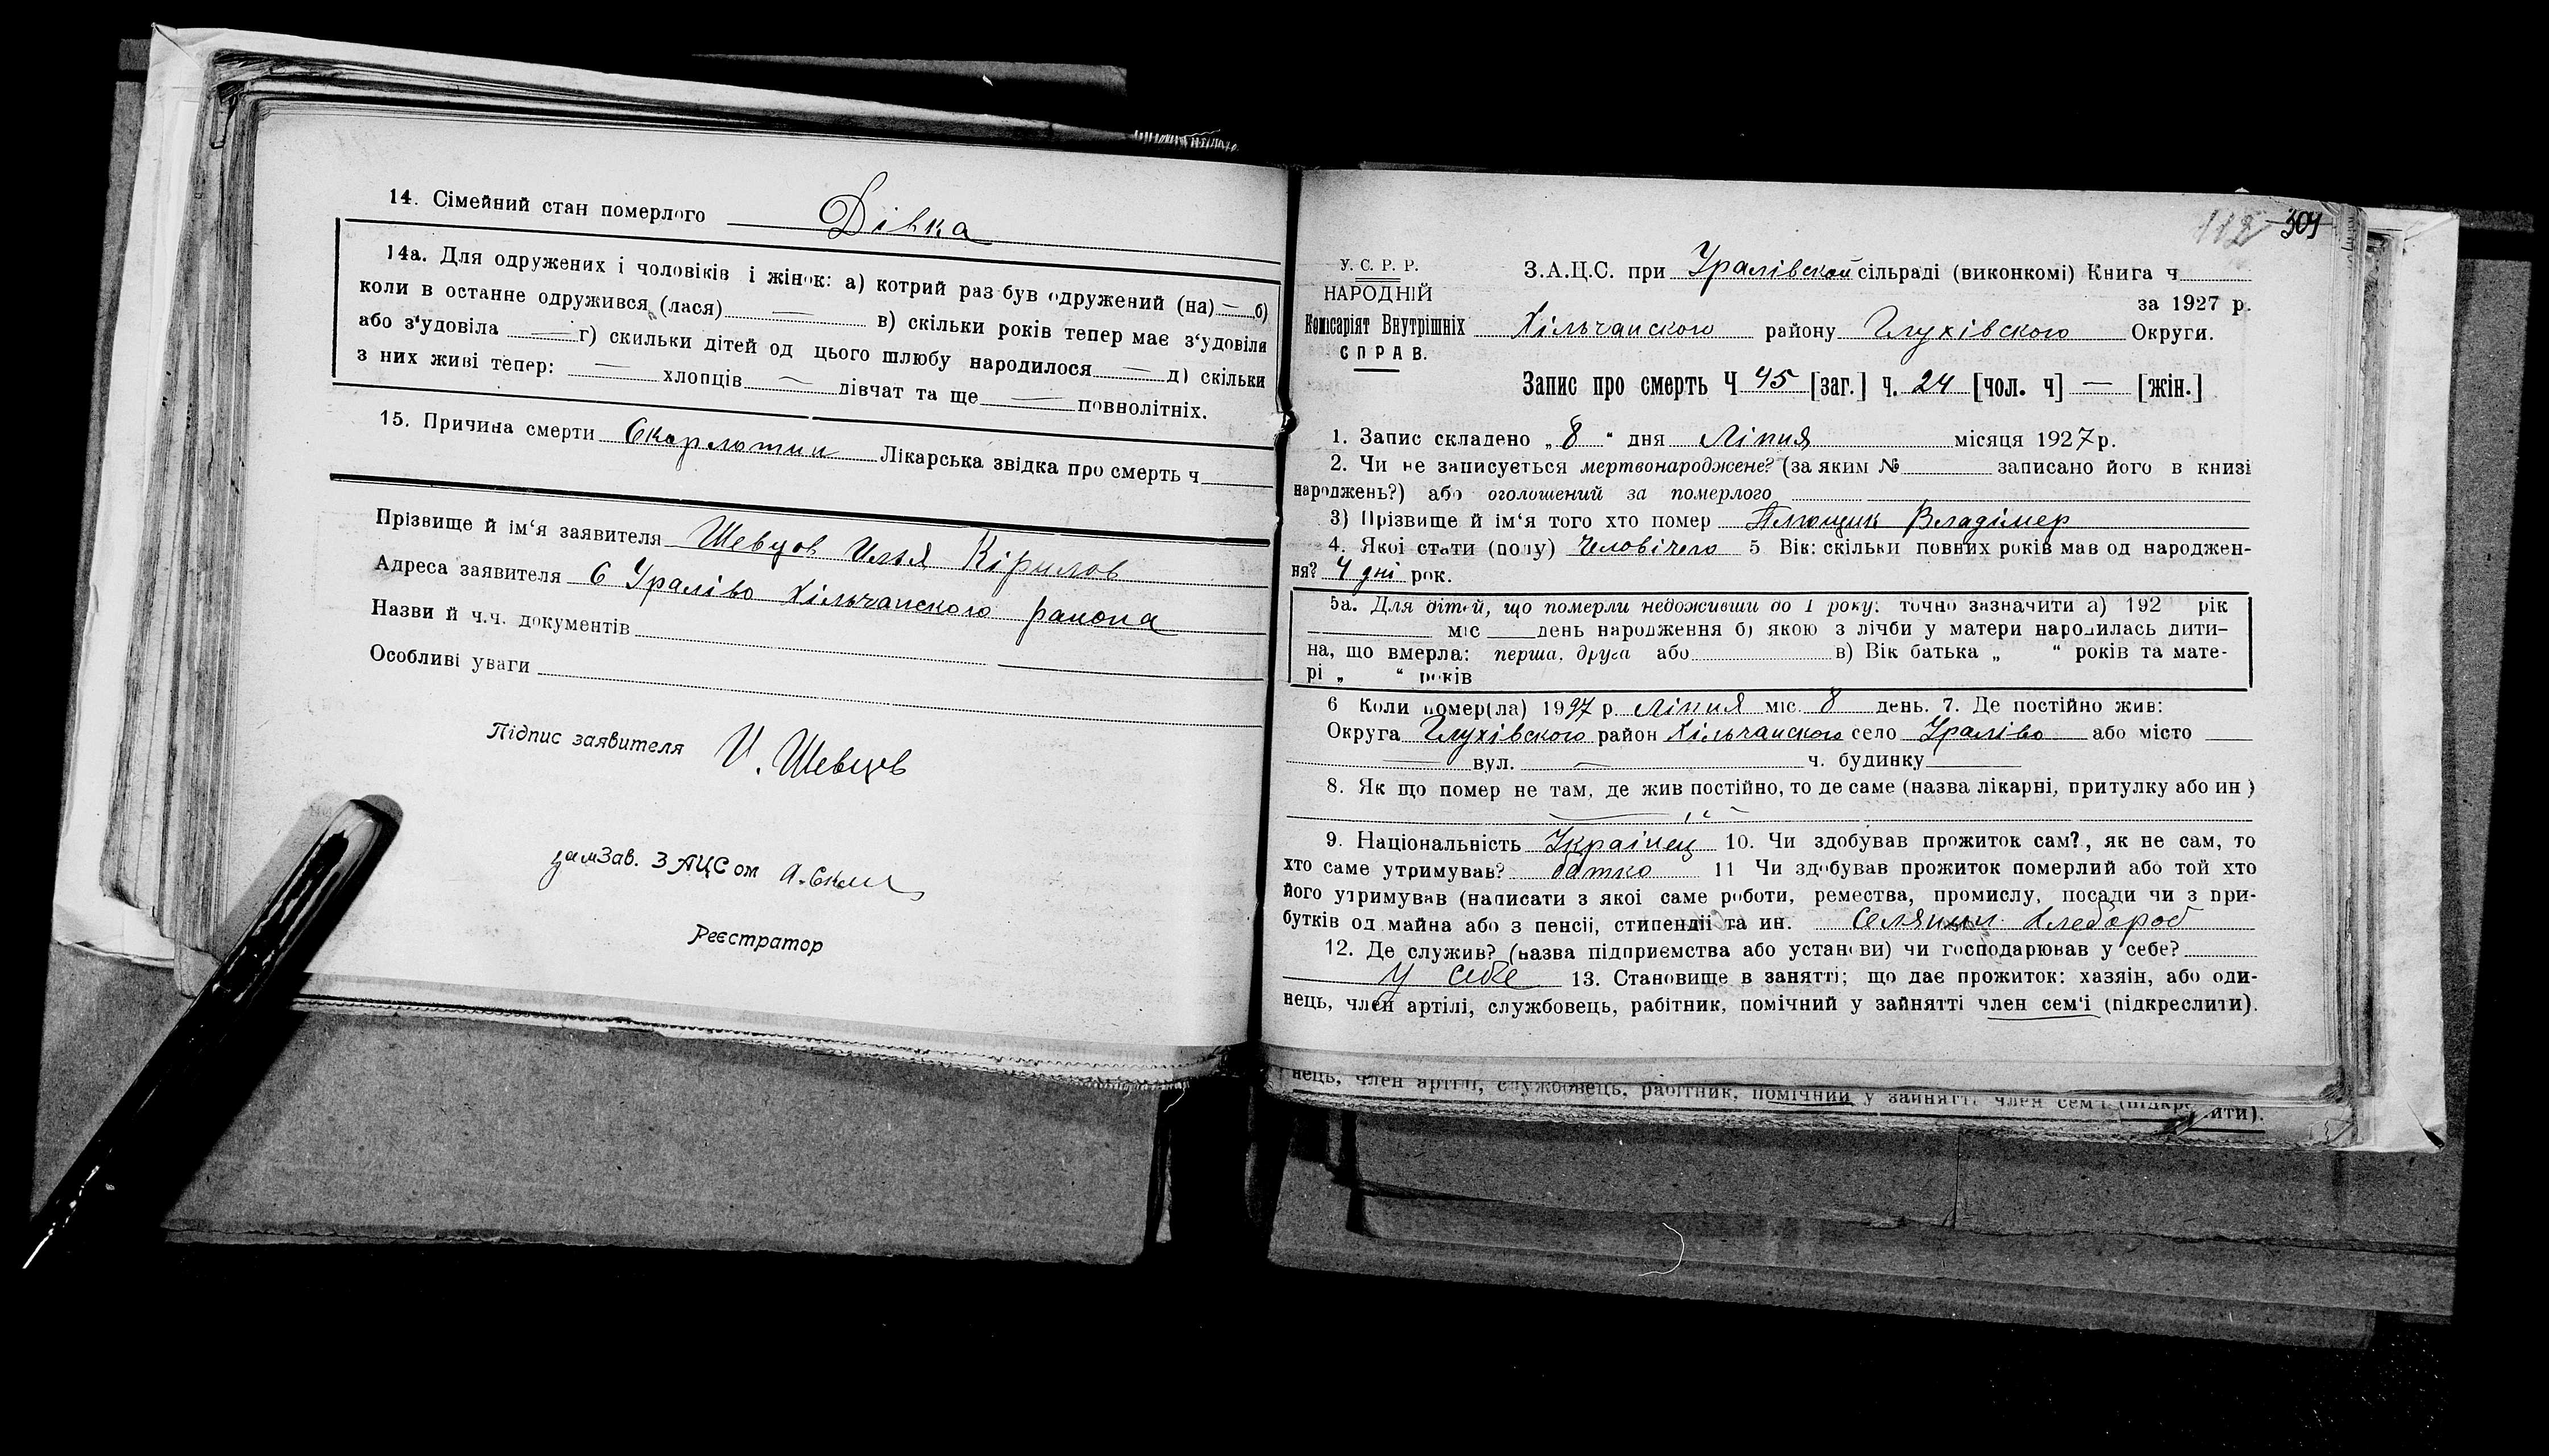 14. Сімейний стан померлого Дівка
14а. Для одружених і чоловіків і жінок: а) котрий раз був одружений (на) — б)
коли в останне одружився (лася) — в) скільки років тепер має з'удовіля
або з'удовіла — г) скильки дітей од цього шлюбу народилося — д) скільки
з них живі тепер: — хлопців — дівчат та ще — повнолітніх.
15. Причина смерти Скарлотии Лікарська звідка про смерть ч
Прізвище й ім'я заявителя Шевцов Илья Кірилов
Адреса заявителя С Ураліво Хільчанского района
Назви й ч.ч. документів
Особливі уваги
Підпис заявителя И. Шевцов
замЗав. ЗАЦСом
Реєстратор
112 304
У. С. Р. Р.
НАРОДНІЙ
Комісаріят Внутрішніх
СПРАВ.
З.А.Ц.С. при Уралівской сільраді (виконкомі) Книга ч
за 1927 р.
Хільчанского району Глухівского Округи.
Запис про смерть Ч 45 [заг.] ч. 24 [чол. ч] — [жін.]
1. Запис складено „8“ дня Ліпня місяця 1927 р.
2. Чи не записується мертвонароджене? (за яким № записано його в книзі
народжень?) або оголошений за померлого
3) Прізвище й ім'я того хто помер Владімер
4. Якої стати (полу) Человічего 5 Вік: скільки повних років мав од народжен-
ня? 4 дні рок.
5а. Для дітей, що померли недоживши до 1 року: точно зазначити а) 192 рік
міс день народження б) якою з лічби у матери народилась дити-
на, що вмерла: перша, друга або в) Вік батька „ “ років та мате-
рі „ “ років
6 Коли помер(ла) 1927 р Ліпня міс. 8 день. 7. Де постійно жив:
Округа Глухівского район Хільчанского село Ураліво або місто —
— вул. — ч. будинку
8. Як що помер не там, де жив постійно, то де саме (назва лікарні, притулку або ин)
9. Національність Украінец 10. Чи здобував прожиток сам?, як не сам, то
хто саме утримував? батко 11 Чи здобував прожиток померлий або той хто
його утримував (написати з якої саме роботи, ремества, промислу, посади чи з при-
бутків од майна або з пенсії, стипендії та ин. Селянин Хлебороб
12. Де служив? (назва підприємства або установи) чи господарював у себе?
У себе 13. Становище в занятті; що дає прожиток: хазяін, або оди-
нець, член артілі, службовець, рабітник, помічний у зайнятті член сем'і (підкреслити).
нець, член артілі, службовець, рабітник, помічний у зайнятті член сем'і (підкреслити).